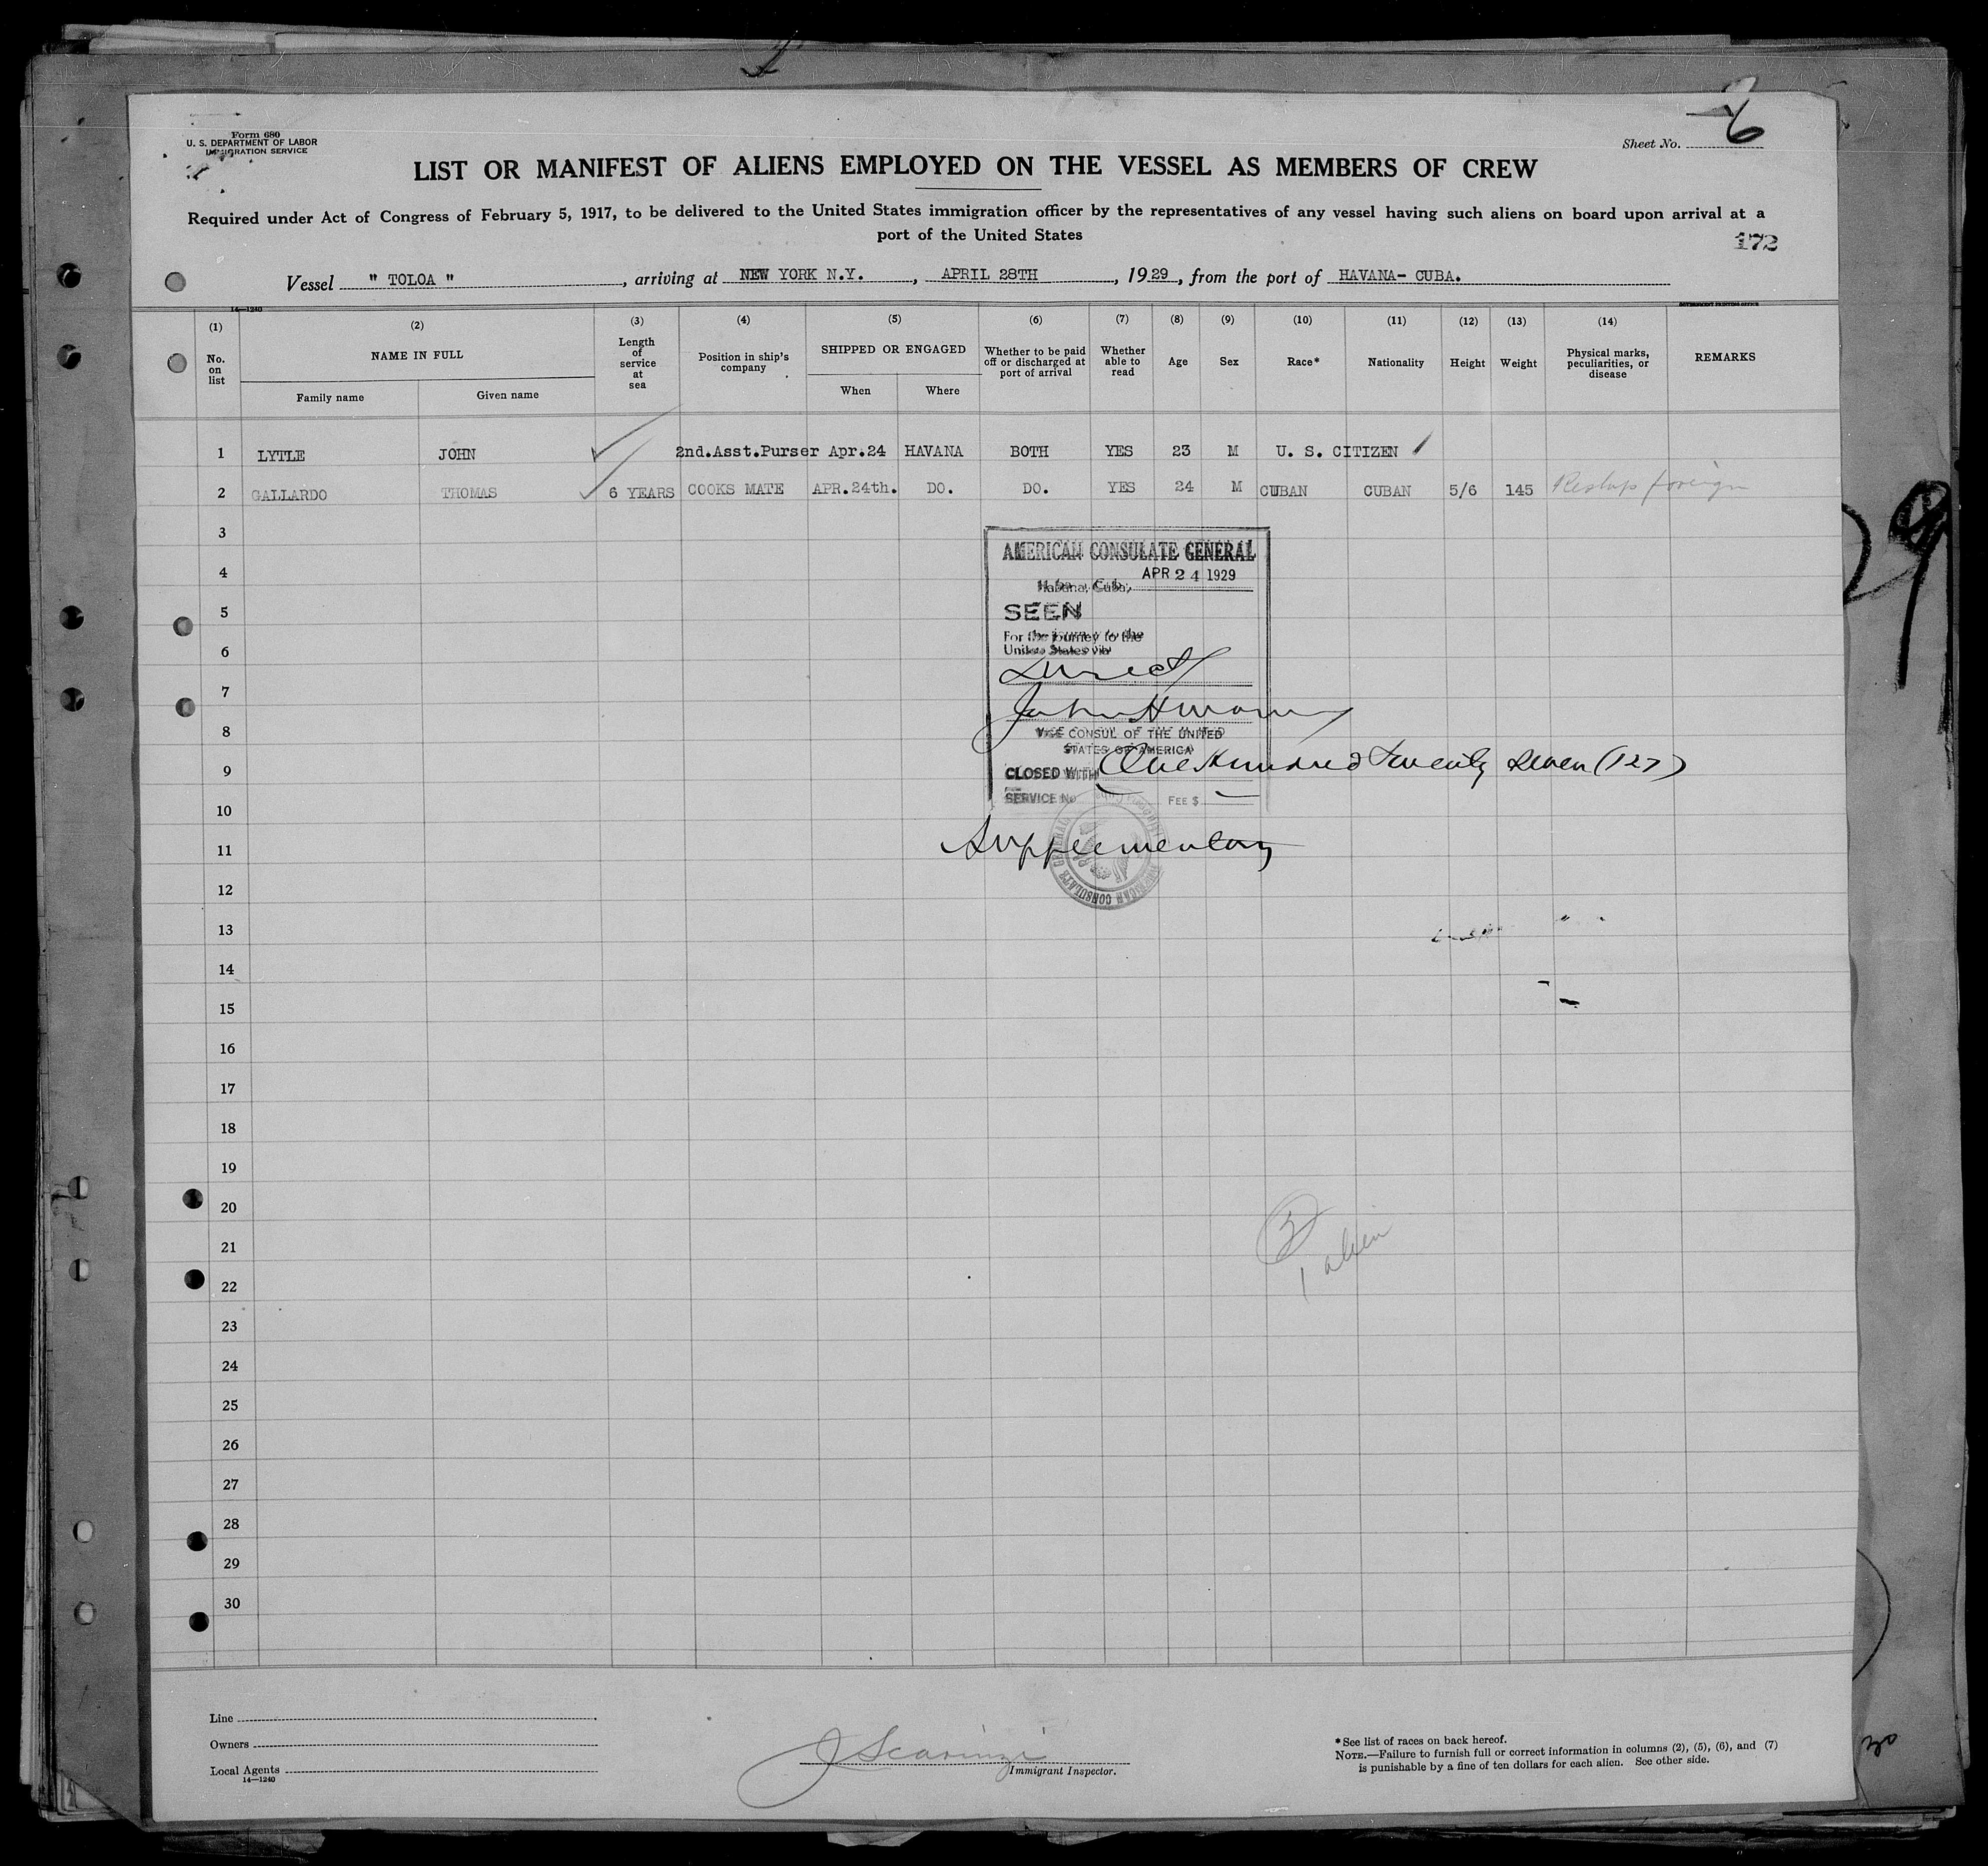 Form 680
U. S. DEPARTMENT OF LABOR
IMMIGRATION SERVICE
Sheet No. 6
LIST OR MANIFEST OF ALIENS EMPLOYED ON THE VESSEL AS MEMBERS OF CREW
Required under Act of Congress of February 5, 1917, to be delivered to the United States immigration officer by the representatives of any vessel having such aliens on board upon arrival at a
port of the United States
172
Vessel " TOLOA ", arriving at NEW YORK N.Y., APRIL 28TH, 1929, from the port of HAVANA- CUBA.
14—1240 GOVERNMENT PRINTING OFFICE
(1) (2) (3) (4) (5) (6) (7) (8) (9) (10) (11) (12) (13) (14)
No. on list NAME IN FULL Length of service at sea Position in ship's company SHIPPED OR ENGAGED Whether to be paid off or discharged at port of arrival Whether able to read Age Sex Race* Nationality Height Weight Physical marks, peculiarities, or disease REMARKS
Family name Given name When Where
1 LYTLE JOHN 2nd.Asst.Purser Apr.24 HAVANA BOTH YES 23 M U. S. CITIZEN
2 GALLARDO THOMAS 6 YEARS COOKS MATE APR.24th. DO. DO. YES 24 M CUBAN CUBAN 5/6 145 Reships foreign
3
AMERICAN CONSULATE GENERAL
4
APR 24 1929
Habana, Cuba,
5
SEEN
For the journey to the
6
United States via
Direct
7
8
VICE CONSUL OF THE UNITED
STATES OF AMERICA
9
CLOSED WITH One Hundred Twenty Seven (127)
SERVICE No. FEE $
10
11
Supplementary
AMERICAN CONSULATE GENERAL
12
13
14
15
16
17
18
19
20
21
1 alien
22
23
24
25
26
27
28
29
30
29
Line
Owners
Local Agents
14—1240
J Scarinzi
Immigrant Inspector.
*See list of races on back hereof.
NOTE.—Failure to furnish full or correct information in columns (2), (5), (6), and (7)
is punishable by a fine of ten dollars for each alien. See other side.